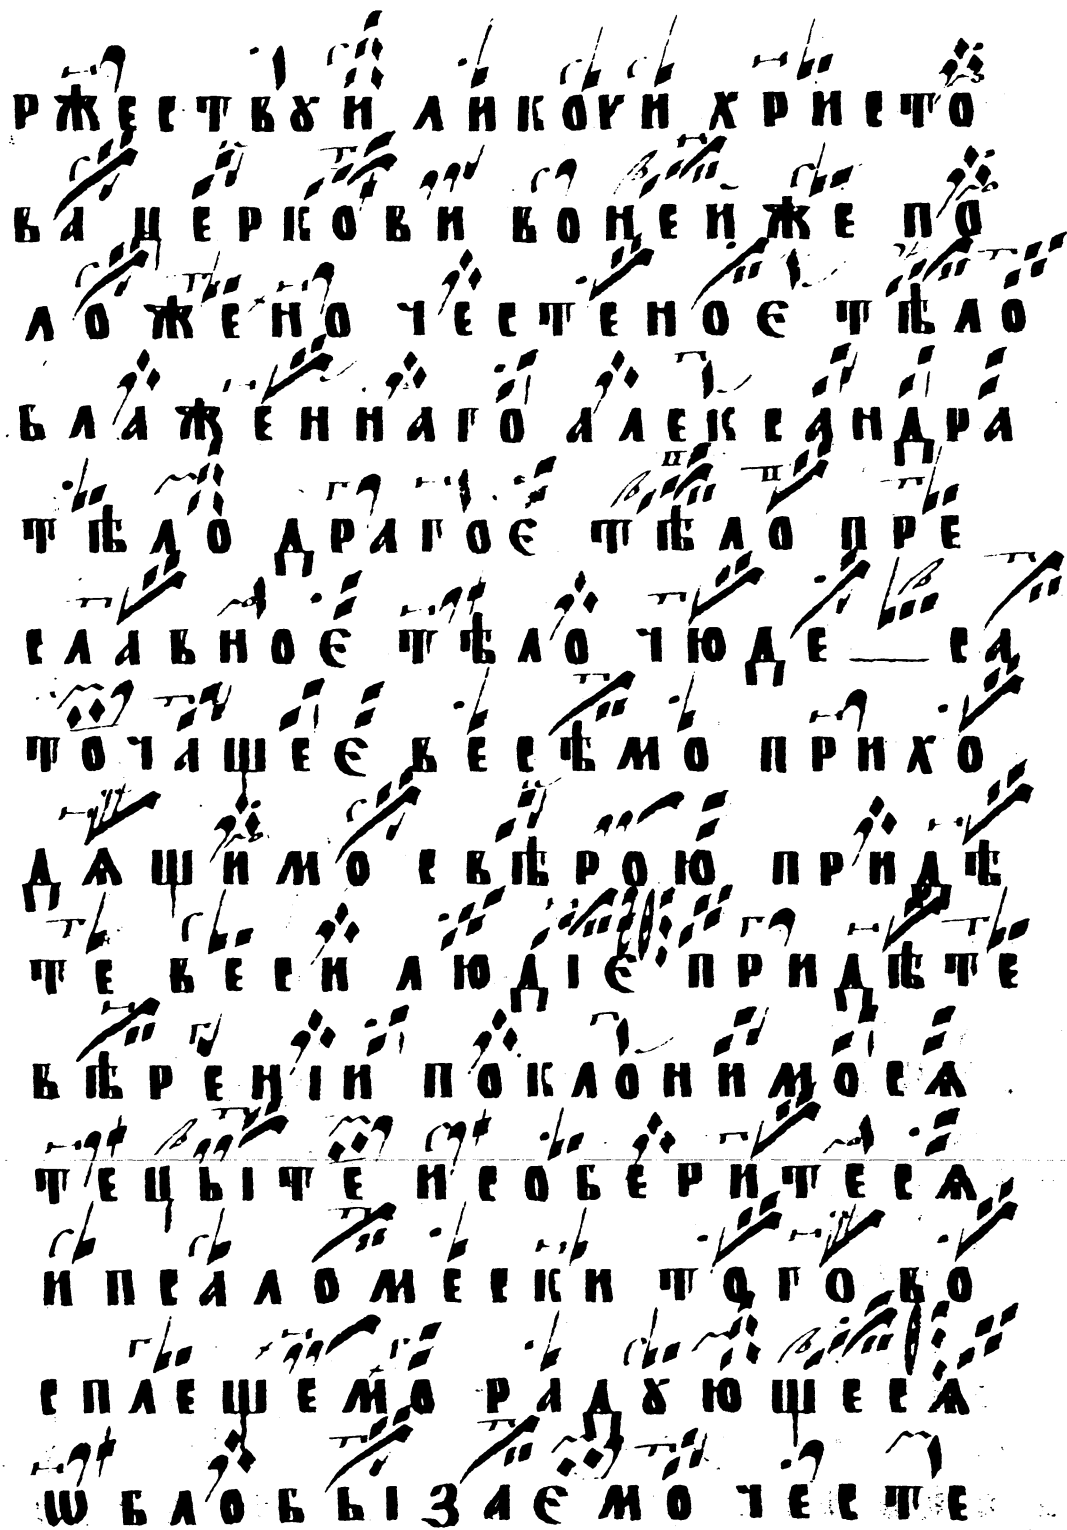 РЖЕСТВꙋИ ЛИКОУИ ХРИСТО
ВА ЦЕРКОВИ ВОНЕЙЖЕ ПО
ЛОЖЕНО ЧЕСТЕНОЄ ТѢЛО
БЛАЖЕННАГО АЛЕКСАНДРА
ТѢЛО ДРАГОЄ ТѢЛО ПРЕ
СЛАВНОЄ ТѢЛО ЧЮДЕ СА
ТОЧАШЕЄ ВЕСѢМО ПРИХО
ДѦШИМО СВѢРОЮ ПРИДѢ
ТЕ ВЕСИ ЛЮДІЄ ПРИДѢТЕ
ВѢРЕНІИ ПОКЛОНИМОСѦ
ТЕЦЫТЕ ИСОБЕРИТЕСѦ
И ПСАЛОМЕСКИ ТОГО ВО
СПЛЕШЕМО РАДꙋЮШЕСѦ
Ѡ БЛОБЫЗАЄМО ЧЕСТЕ